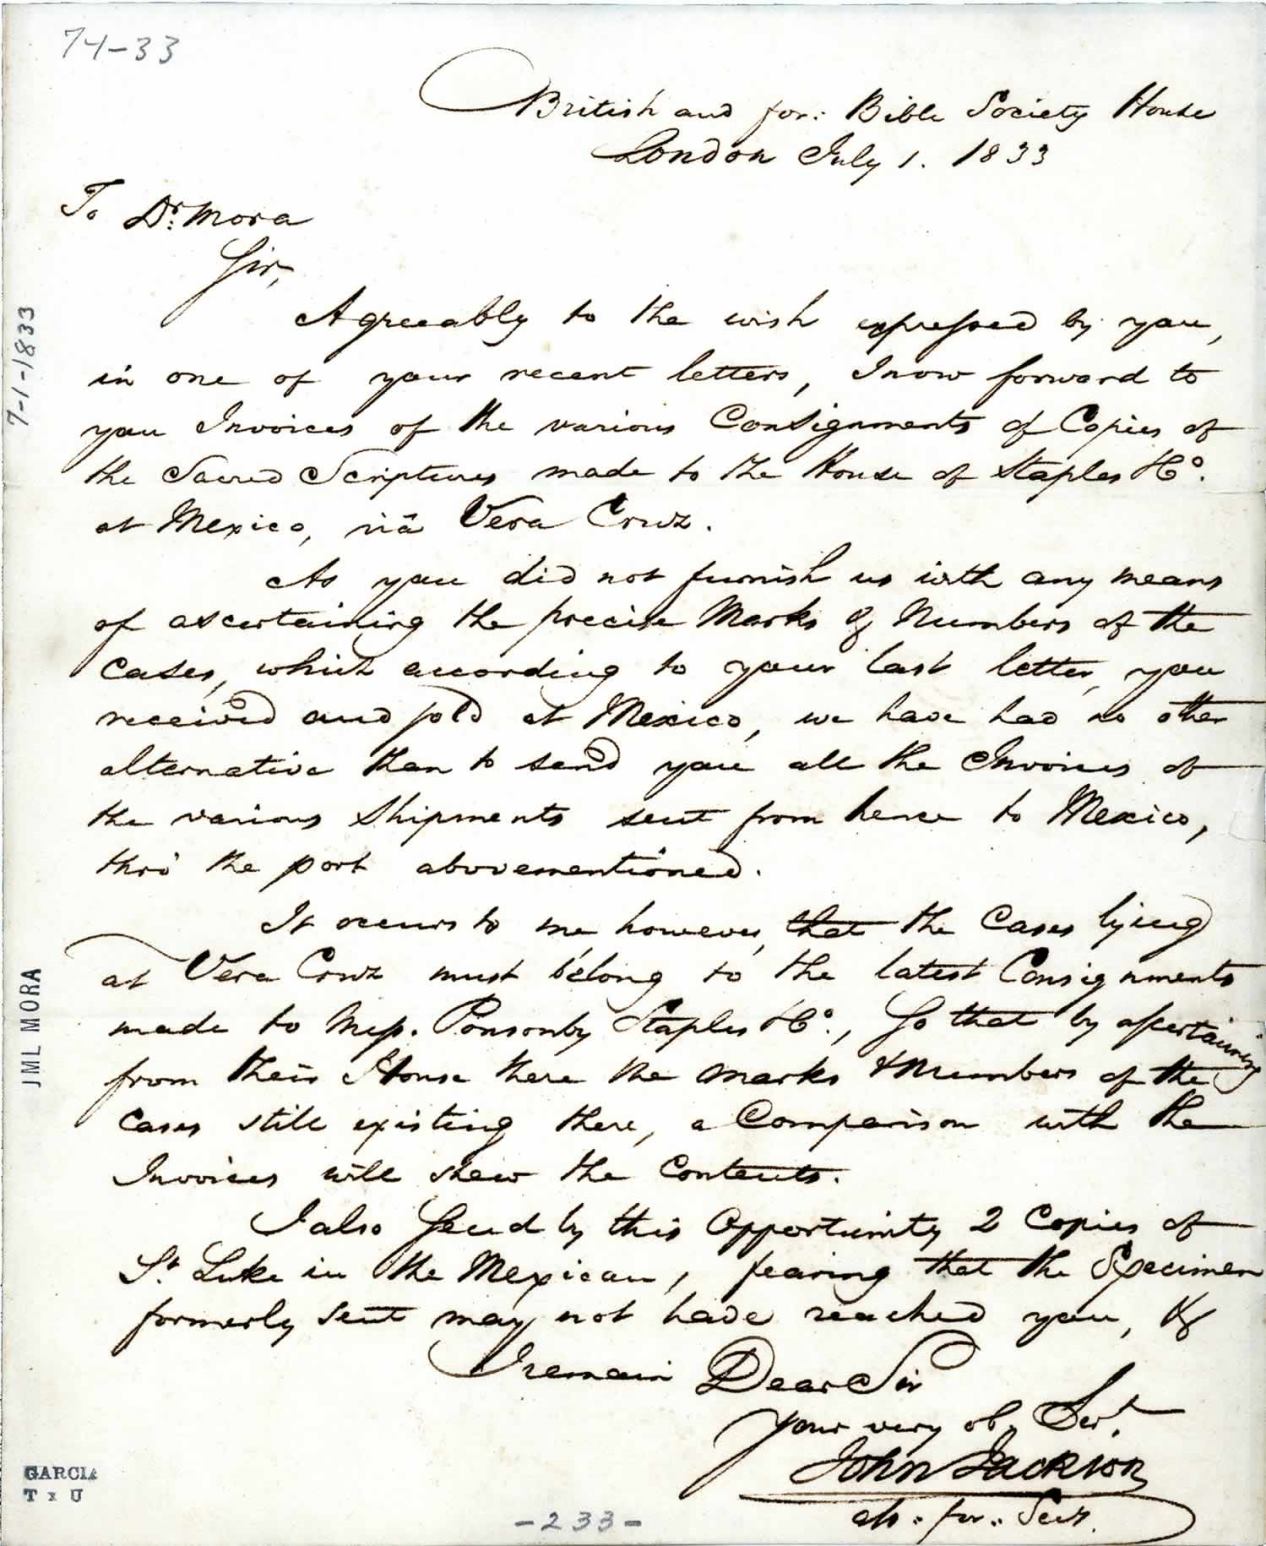 74-33
British and for: Bible Society House
London July 1. 1833
To Dr. Mora
Sir,
Agreeably to the wish expressed by you,
in one of your recent letters, I now forward to
you Invoices of the various Consignments of Copies of
the Sacred Scriptures made to the House of Staples & Co.
at Mexico, viâ Vera Cruz.
As you did not furnish us with any means
of ascertaining the precise Marks & Numbers of the
Cases, which according to your last letter, you
received and sold at Mexico, we have had no other
alternative than to send you all the Invoices of
the various Shipments sent from hence to Mexico,
thro' the port abovementioned.
It occurs to me, however, that the Cases lying
at Vera Cruz must belong to the latest Consignments
made to Mess. Ponsonby Staples & Co., So that by ascertaining
from their House there the marks & Numbers of the
Cases still existing there, a Comparison with the
Invoices will shew the Contents.
I also Send by this Opportunity 2 Copies of
St. Luke in the Mexican, fearing that the Specimen
formerly sent may not have reached you, &
I remain Dear Sir
Your very ob. Sert.
John Jackson
for. Secy.
7-1-1833
JML MORA
GARCIA
T x U
-233-